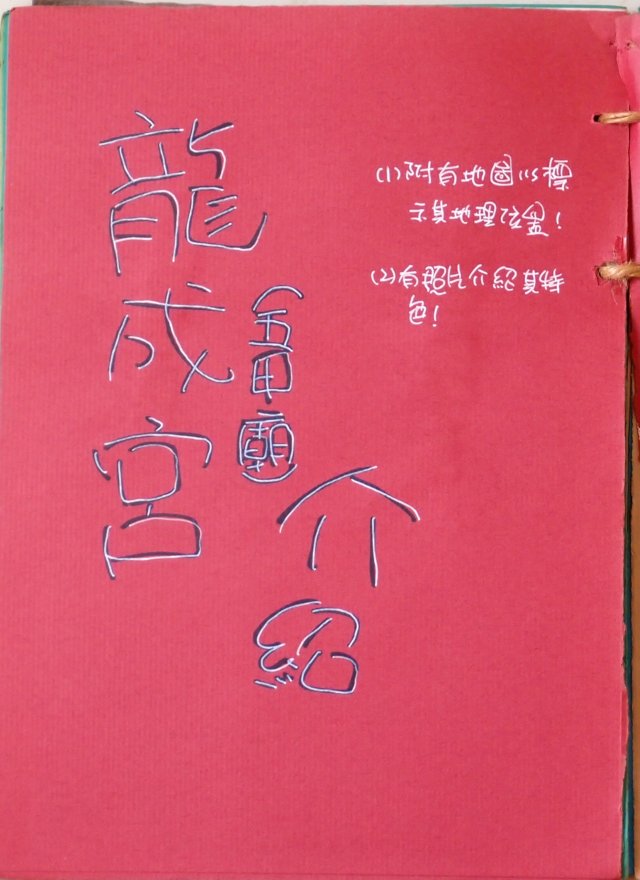 龍成宮
(五甲廟)
介紹
(1)附有地圖以標
示其地理位置!
(2)有照片介紹其特
色!